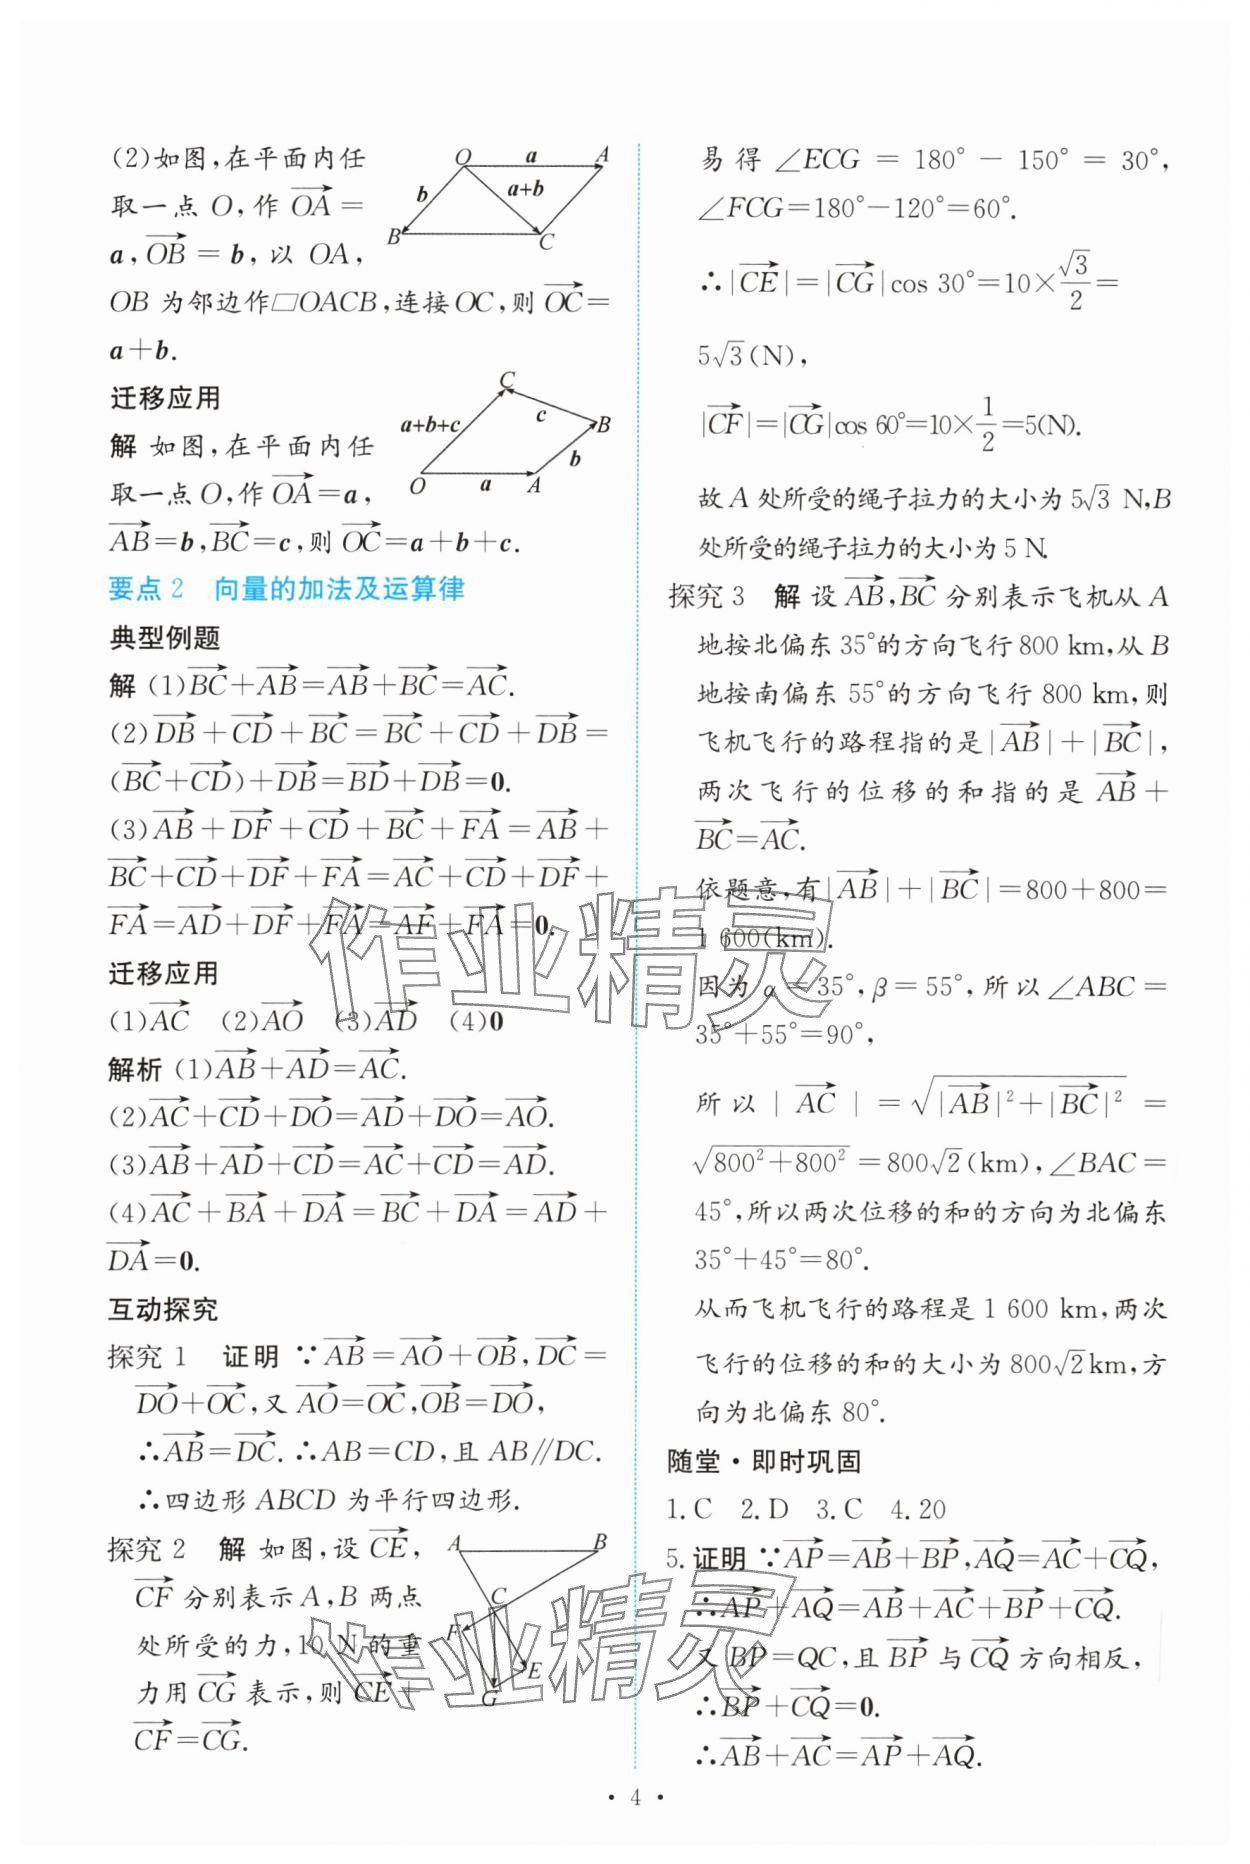 (2)如图,在平面内任
取一点 O,作 $\overrightarrow{OA}$=
a,$\overrightarrow{OB}$=b,以 OA,
OB 为邻边作□OACB,连接OC,则 $\overrightarrow{OC}$=
a+b.
O a A
b a+b
B C
迁移应用
解 如图,在平面内任
取一点 O,作 $\overrightarrow{OA}$=a,
$\overrightarrow{AB}$=b,$\overrightarrow{BC}$=c,则 $\overrightarrow{OC}$=a+b+c.
C
a+b+c c B
b
O a A
要点 2 向量的加法及运算律
典型例题
解 (1)$\overrightarrow{BC}$+$\overrightarrow{AB}$=$\overrightarrow{AB}$+$\overrightarrow{BC}$=$\overrightarrow{AC}$.
(2)$\overrightarrow{DB}$+$\overrightarrow{CD}$+$\overrightarrow{BC}$=$\overrightarrow{BC}$+$\overrightarrow{CD}$+$\overrightarrow{DB}$=
($\overrightarrow{BC}$+$\overrightarrow{CD}$)+$\overrightarrow{DB}$=$\overrightarrow{BD}$+$\overrightarrow{DB}$=0.
(3)$\overrightarrow{AB}$+$\overrightarrow{DF}$+$\overrightarrow{CD}$+$\overrightarrow{BC}$+$\overrightarrow{FA}$=$\overrightarrow{AB}$+
$\overrightarrow{BC}$+$\overrightarrow{CD}$+$\overrightarrow{DF}$+$\overrightarrow{FA}$=$\overrightarrow{AC}$+$\overrightarrow{CD}$+$\overrightarrow{DF}$+
$\overrightarrow{FA}$=$\overrightarrow{AD}$+$\overrightarrow{DF}$+$\overrightarrow{FA}$=$\overrightarrow{AF}$+$\overrightarrow{FA}$=0.
迁移应用
(1)$\overrightarrow{AC}$ (2)$\overrightarrow{AO}$ (3)$\overrightarrow{AD}$ (4)0
解析 (1)$\overrightarrow{AB}$+$\overrightarrow{AD}$=$\overrightarrow{AC}$.
(2)$\overrightarrow{AC}$+$\overrightarrow{CD}$+$\overrightarrow{DO}$=$\overrightarrow{AD}$+$\overrightarrow{DO}$=$\overrightarrow{AO}$.
(3)$\overrightarrow{AB}$+$\overrightarrow{AD}$+$\overrightarrow{CD}$=$\overrightarrow{AC}$+$\overrightarrow{CD}$=$\overrightarrow{AD}$.
(4)$\overrightarrow{AC}$+$\overrightarrow{BA}$+$\overrightarrow{DA}$=$\overrightarrow{BC}$+$\overrightarrow{DA}$=$\overrightarrow{AD}$+
$\overrightarrow{DA}$=0.
互动探究
探究 1 证明 ∵$\overrightarrow{AB}$=$\overrightarrow{AO}$+$\overrightarrow{OB}$,$\overrightarrow{DC}$=
$\overrightarrow{DO}$+$\overrightarrow{OC}$,又 $\overrightarrow{AO}$=$\overrightarrow{OC}$,$\overrightarrow{OB}$=$\overrightarrow{DO}$,
∴$\overrightarrow{AB}$=$\overrightarrow{DC}$.∴AB=CD,且 AB∥DC.
∴四边形 ABCD 为平行四边形.
探究 2 解 如图,设 $\overrightarrow{CE}$,
$\overrightarrow{CF}$ 分别表示 A,B 两点
处所受的力,10 N 的重
力用 $\overrightarrow{CG}$ 表示,则 $\overrightarrow{CE}$+
$\overrightarrow{CF}$=$\overrightarrow{CG}$.
A B
C
F
E
G
易得 ∠ECG = 180° − 150° = 30°,
∠FCG=180°−120°=60°.
∴|$\overrightarrow{CE}$|=|$\overrightarrow{CG}$|cos 30°=10×$\frac{\sqrt{3}}{2}$=
5$\sqrt{3}$(N),
|$\overrightarrow{CF}$|=|$\overrightarrow{CG}$|cos 60°=10×$\frac{1}{2}$=5(N).
故 A 处所受的绳子拉力的大小为 5$\sqrt{3}$ N,B
处所受的绳子拉力的大小为 5 N.
探究 3 解 设 $\overrightarrow{AB}$,$\overrightarrow{BC}$ 分别表示飞机从 A
地按北偏东 35°的方向飞行 800 km,从 B
地按南偏东 55°的方向飞行 800 km,则
飞机飞行的路程指的是|$\overrightarrow{AB}$|+|$\overrightarrow{BC}$|,
两次飞行的位移的和指的是 $\overrightarrow{AB}$+
$\overrightarrow{BC}$=$\overrightarrow{AC}$.
依题意,有|$\overrightarrow{AB}$|+|$\overrightarrow{BC}$|=800+800=
1 600(km).
因为 α=35°,β=55°,所以∠ABC=
35°+55°=90°,
所以|$\overrightarrow{AC}$|=$\sqrt{|\overrightarrow{AB}|^2+|\overrightarrow{BC}|^2}$=
$\sqrt{800^2+800^2}$=800$\sqrt{2}$(km),∠BAC=
45°,所以两次位移的和的方向为北偏东
35°+45°=80°.
从而飞机飞行的路程是 1 600 km,两次
飞行的位移的和的大小为 800$\sqrt{2}$km,方
向为北偏东 80°.
随堂·即时巩固
1.C 2.D 3.C 4.20
5.证明 ∵$\overrightarrow{AP}$=$\overrightarrow{AB}$+$\overrightarrow{BP}$,$\overrightarrow{AQ}$=$\overrightarrow{AC}$+$\overrightarrow{CQ}$,
∴$\overrightarrow{AP}$+$\overrightarrow{AQ}$=$\overrightarrow{AB}$+$\overrightarrow{AC}$+$\overrightarrow{BP}$+$\overrightarrow{CQ}$.
又 BP=QC,且 $\overrightarrow{BP}$ 与 $\overrightarrow{CQ}$ 方向相反,
∴$\overrightarrow{BP}$+$\overrightarrow{CQ}$=0.
∴$\overrightarrow{AB}$+$\overrightarrow{AC}$=$\overrightarrow{AP}$+$\overrightarrow{AQ}$.
作业精灵
作业精灵
· 4 ·